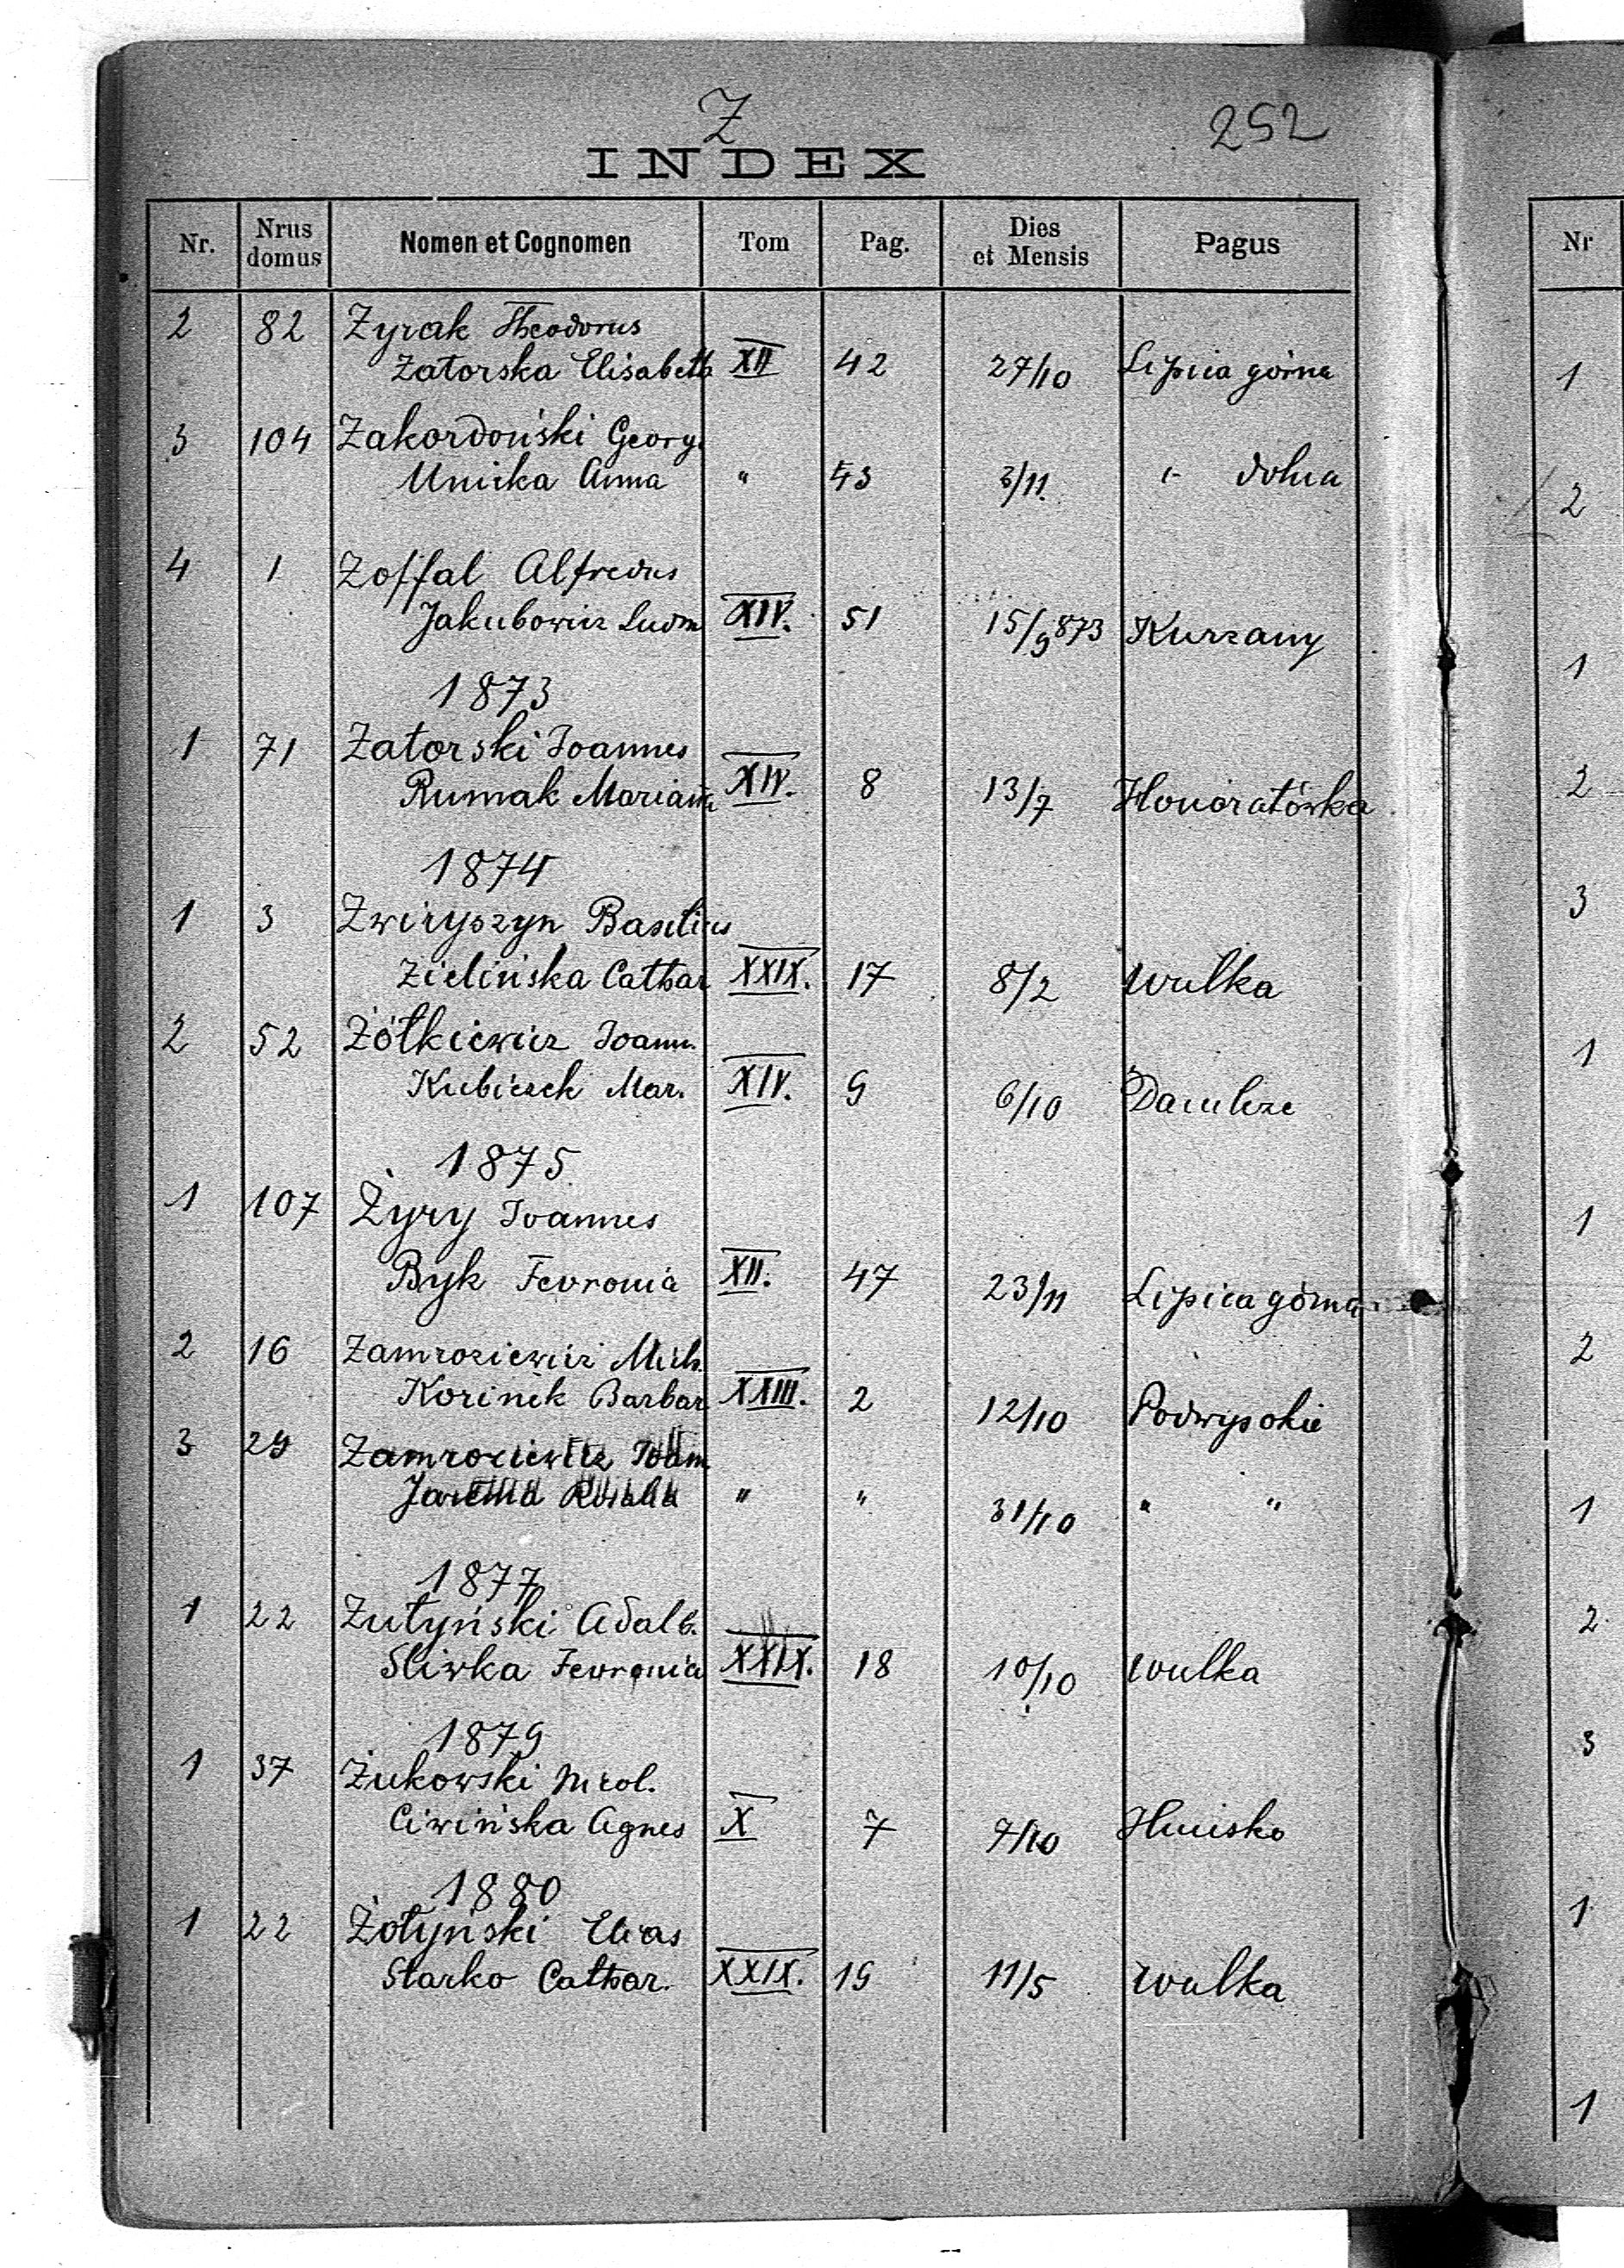 Z
252
INDEX
Nr. Nrus domus Nomen et Cognomen Tom Pag. Dies et Mensis Pagus
2 82 Zyrak Theodorus
Zatorska Elisabeth XII 42 27/10 Lipica górna
3 104 Zakordoński Georg.
Unicka Anna " 43 3/11 " dolna
4 1 Zoffal Alfredus
Jakubowicz Ludm XIV. 51 15/9 873 Kurzany
1873
1 71 Zatorski Joannes
Rumak Marianna XIV. 8 13/7 Honoratówka
1874
1 3 Zwiryszyn Basilius
Zielińska Cathar XXIX. 17 8/2 Wulka
2 52 Żółkiewicz Joann.
Kubiczek Mar. XIV. 9 6/10 Demeleze
1875
1 107 Żyry Joannes
Byk Fevronia XII. 47 23/11 Lipica górna
2 16 Zamroziewicz Mich.
Korinek Barbar XXIII. 2 12/10 Podwysokie
3 29 Zamroziewicz Joan.
Jarema Rosalia " " 31/10 " "
1877
1 22 Zutyński Adalb.
Sliwka Fevronia XXIX. 18 10/10 Wulka
1879
1 37 Żukowski Nicol.
Ciwińska Agnes X 7 7/10 Hucisko
1880
1 22 Żotyński Elias
Starko Cathar. XXIX. 19 11/5 Wulka
Nr
1
2
1
2
3
1
1
2
1
2
3
1
1